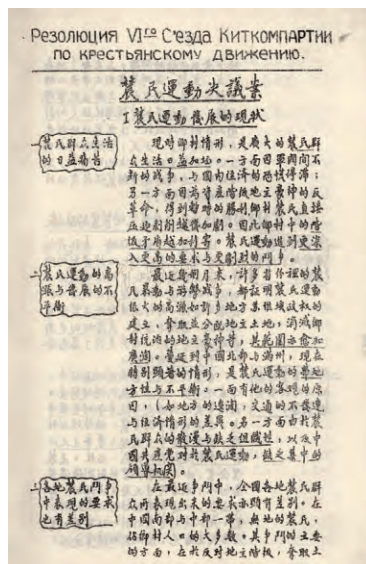 Резолюция VIго С'езда Киткомпартии
по крестьянскому движению.
農民運動决議案
I 農民運動發展的現狀
一 農民群众生活
的日益痛苦
現時鄉村情形，是廣大的農民群
众生活。益加地。一方面因軍閥間不
断的战争，與國内经济的恐慌停滞；
另一方面因為資產階級地主豪紳的反
革命，得到暫時的勝利鄉村農民直接
压迫剥削越發加劇。因此鄉村中的階
级矛盾越加利害。農民運動遂到更深
入更高的要求与更剧烈的鬥争。
二 農民運動的高
漲与發展的不
平衡
最近幾個月来，許多省份裡的農
民暴動与游擊战争，都証明農民運動
很大的高漲如許多地方苏维埃政权的
建立，拿取並分配地主土地，消滅鄉
村統治的地主豪紳等，其範圍亦愈加
廣濶。蔓延到中國北部与满州，現在
特别顯著的情形，是農民運動的畢地
方性与不平衡。一面有他的客观的原
因，（如地方的遼濶，交通的不舊连
与往济情形的差異。另一方面由於農
民群众的散漫与缺乏组織性，以及中
國共產党对於農民運動，缺乏集中的
領導机関。
三 各地農民鬥争
中表現的要求
也有差别
在最近争鬥中，全國各地農民群
众所表现出来的要求亦頗有差别。在
中國南部与中部一帶，無地的農民，
佔鄉村人。的大多数。其争鬥的主要
的方面，在於反对地主階級，拿取土